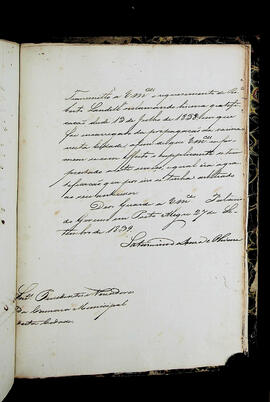 Transmitto a Vm.ces o requerimento de Ro-
berto Landell reclamando huma gratifi-
cação desde 13 de Julho de 1838 em que
foi encarregado da propagação da vaccina
nesta Cidade, afim de que Vm.ces infor-
mem se com effeito o supplicante tem
prestado a este serviço, e qual era a gra-
tificação que por isso tinha arbitrado
ao seu antecessor.
Deos Guarde a Vm.ces Palacio
do Governo em Porto Alegre 27 de Se-
tembro de 1839.
Saturnino de Souza e Oliveira
Snr.es Presidente e Vereadores
da Camara Municipal
desta Cidade